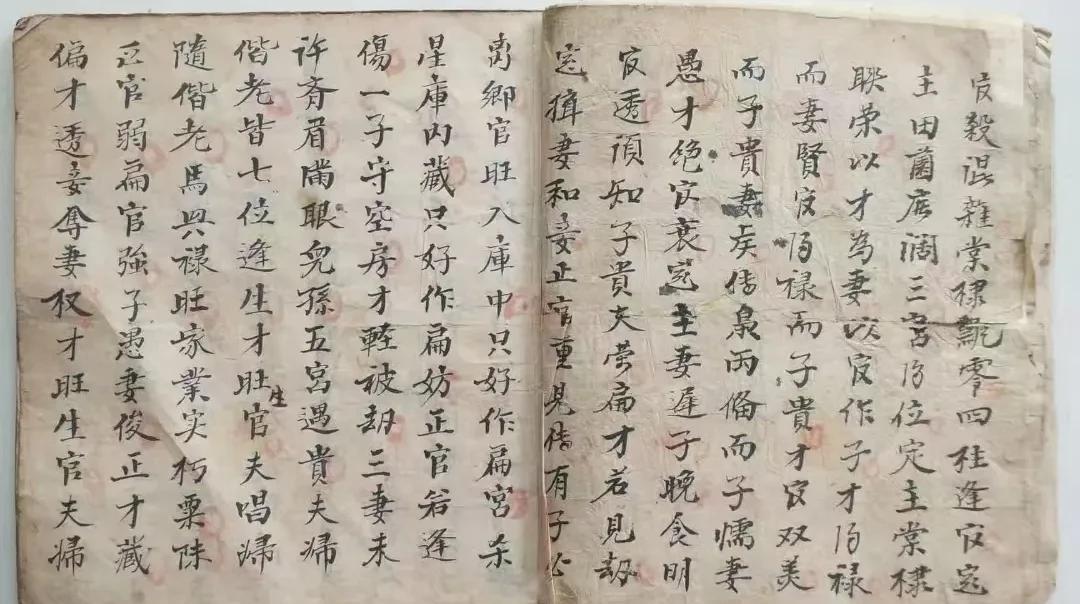 官殺混雜棠棣飄零四柱逢官定
主田园广阔三宫得位定主棠棣
联荣以才為妻以官作子才得禄
而妻賢官得禄而子貴才官双美
而子貴妻矣伤枭两俻而子懦妻
愚才绝官衰定主妻遅子晚食明
官透須知子貴夫荣扁才若見劫
定損妻和妾正官重見伤有子必
离鄉官旺入庫中只好作扁宫杀
星庫内藏只好作扁妨正官若逢
傷一子守空房才輕被劫三妻未
许齐眉滿眼兒孫五宫遇貴夫婦
偕老皆七位逢生才旺生官夫唱婦
隨偕老馬與禄旺家業实朽粟陈
正官弱扁官強子愚妻俊正才藏
偏才透妾奪妻权才旺生官夫婦